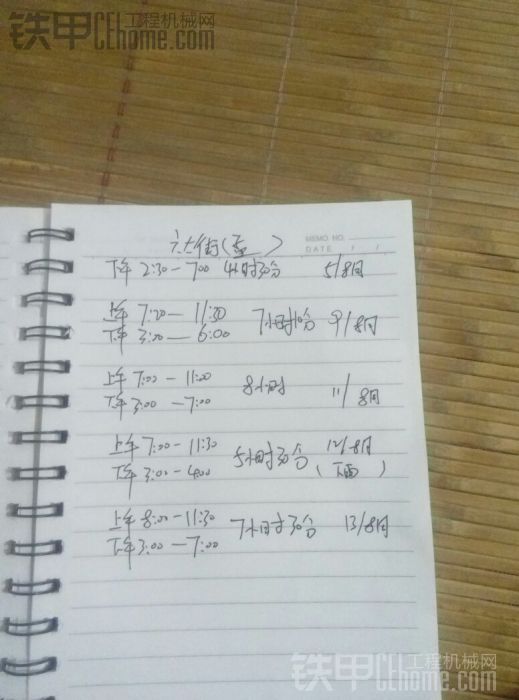 铁甲 工程机械网
CEhome.com
MEMO NO.
DATE / /
下午 2:30-7:00 4小时30分 5/8月
上午 7:20-11:30
下午 3:00-6:00 7小时10分 9/8月
上午 7:00-11:00
下午 3:00-7:00 8小时 11/8月
上午 7:00-11:30
下午 3:00-4:00 5小时30分 12/8月
(下雨)
上午 8:00-11:30
下午 3:00-7:00 7小时30分 13/8月
铁甲 工程机械网
CEhome.com